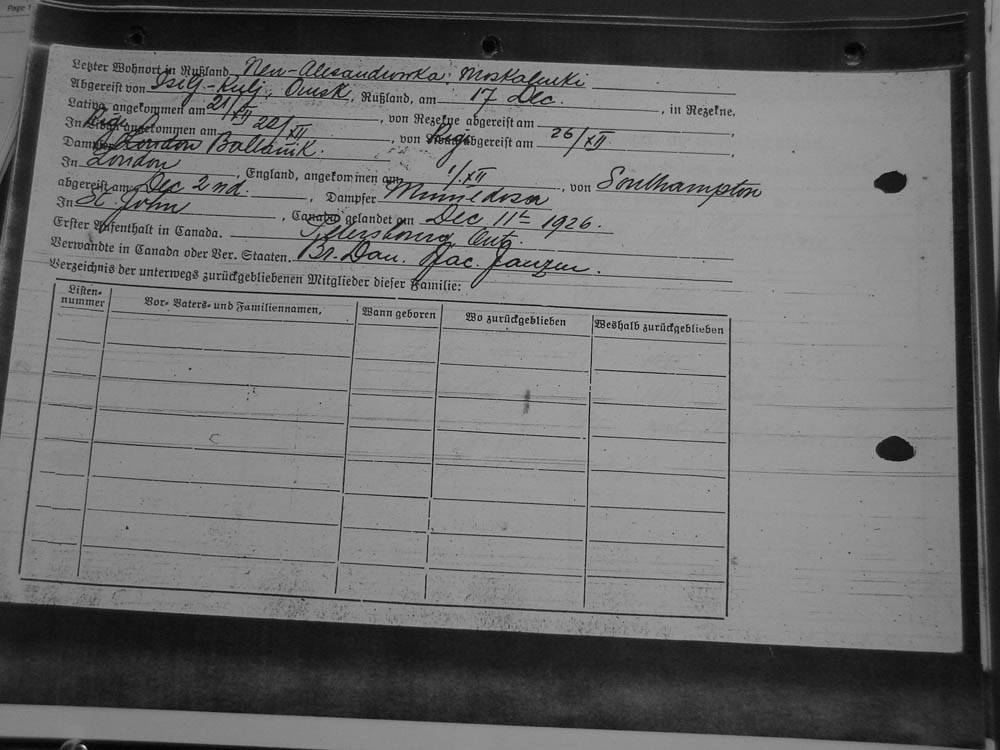 Page 1
Letzter Wohnort in Rußland Neu-Alexandrowka, Moskalenki
Abgereist von Isilj-Kulj, Omsk, Rußland, am 17 Dec. , in Rezekne,
Lativa angekommen am 21/XII , von Rezekne abgereist am ,
In Riga angekommen am 22/XII , von Riga abgereist am 26/XII .
Dampfer Baltanik.
In London , England, angekommen am 1/XII , von Southampton
abgereist am Dec 2nd. , Dampfer Minnedosa
In St. John , Canada gelandet am Dec 11th 1926.
Erster Aufenthalt in Canada. Petersbourg Ont.
Verwandte in Canada oder Ver. Staaten. Br. Dav. Jac. Janzen.
Verzeichnis der unterwegs zurückgebliebenen Mitglieder dieser Familie:
Listen-nummer Vor- Vaters- und Familiennamen, Wann geboren Wo zurückgeblieben Weshalb zurückgeblieben